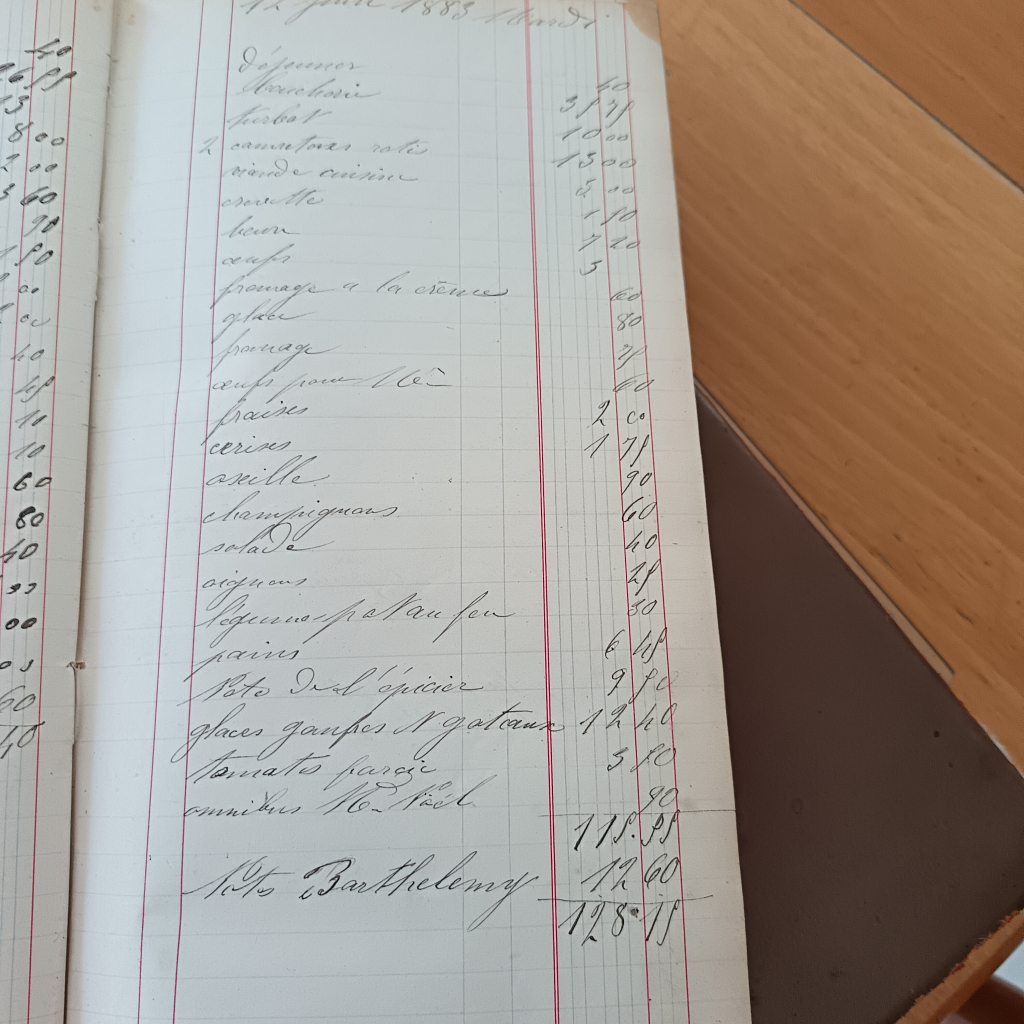 40
16.55
13
8 00
2 00
3 60
90
1 50
00
00
40
45
10
10
60
80
40
00
60
40
12 juin 1883 Mardi
déjeuner 40
Boucherie 35 75
turbot 10 00
2 cannetons rotis 13 00
viande cuisine 5 00
crevette 1 50
beurre 7 20
œufs 5
fromage a la crème 60
glace 80
fromage 75
œufs pour 60
fraises 2 00
cerises 1 75
oseille 90
champignons 60
salade 40
oignons 25
légumes pot au feu 50
pains 6 45
Note de l'épicier 9 50
glaces gaufres et gateaux 12 40
tomates farcie 3 50
omnibus Md Noël 90
115.55
Note Barthelemy 12 60
128.15